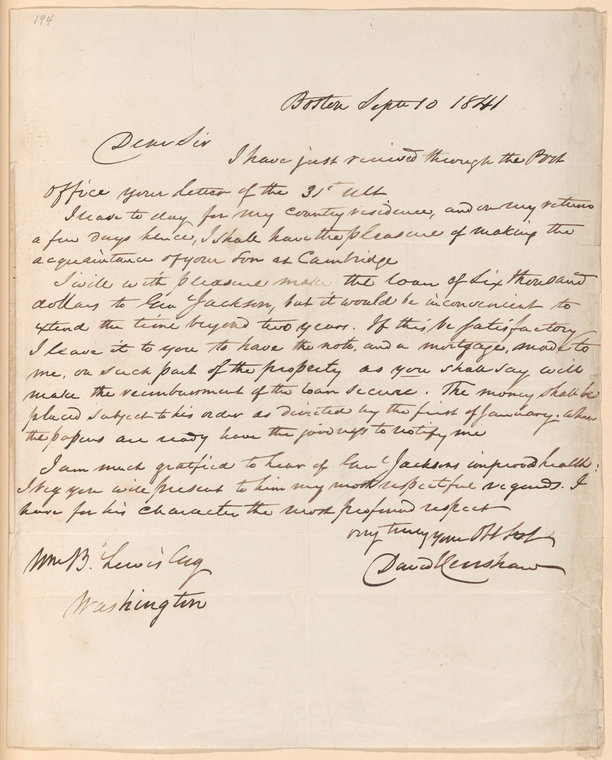 194
Boston Septr 10 1841
Dear Sir
I have just received through the Post
Office your letter of the 31st Ult
I leave to day for my country residence, and on my return
a few days hence, I shall have the pleasure of making the
acquaintance of your Son at Cambridge
I will with pleasure make the loan of Six thousand
dollars to Genl Jackson, but it would be inconvenient to
extend the time beyond two years. If this be satisfactory
I leave it to you to have the note, and a mortgage, made to
me, on such part of the property as you shall say will
make the reimbursment of the loan secure. The money shall be
placed subject to his order as directed by the first of January. When
the papers are ready have the goodness to notify me
I am much gratified to hear of Genl Jacksons improved health:
I beg you will present to him my most respectful regards. I
have for his character the most profound respect
Very truly your Obt Sert
David Henshaw
Wm B. Lewis Esq
Washington